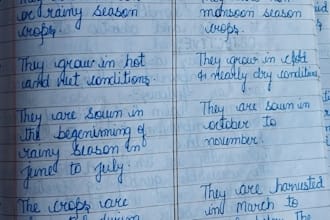 or rainy season
crops.
They grow in hot
and wet conditions.
They are sown in
the begeninming of
rainy season in
june to july.
The crops are
monsoon season
crops.
They grow in cold
& nearly dry conditions
They are sown in
october to
november.
They are harvusted
in March to